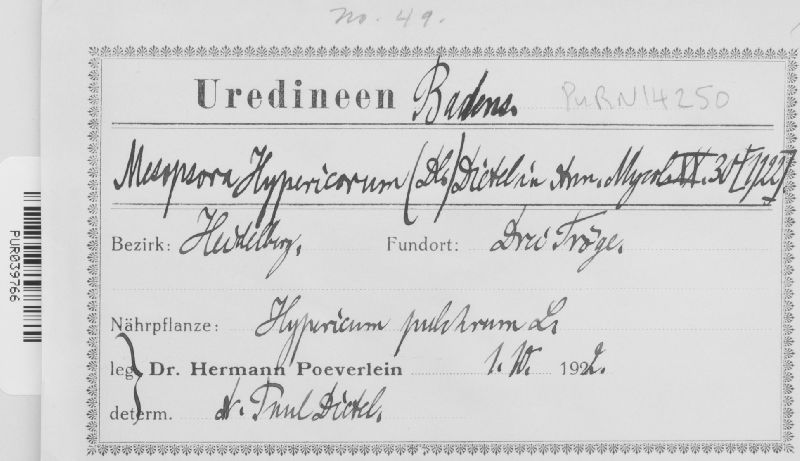 No. 49.
Uredineen Badens.
PURN14250
Mesopsora Hypericorum (Dl.) Dietel in Ann. Mycol. XX. 30 [1922]
Bezirk: Heidelberg. Fundort: Drei Tröge.
Nährpflanze: Hypericum pulchrum L.
leg. Dr. Hermann Poeverlein 1. IV. 1922.
determ. Dr. Paul Dietel.
PUR039766